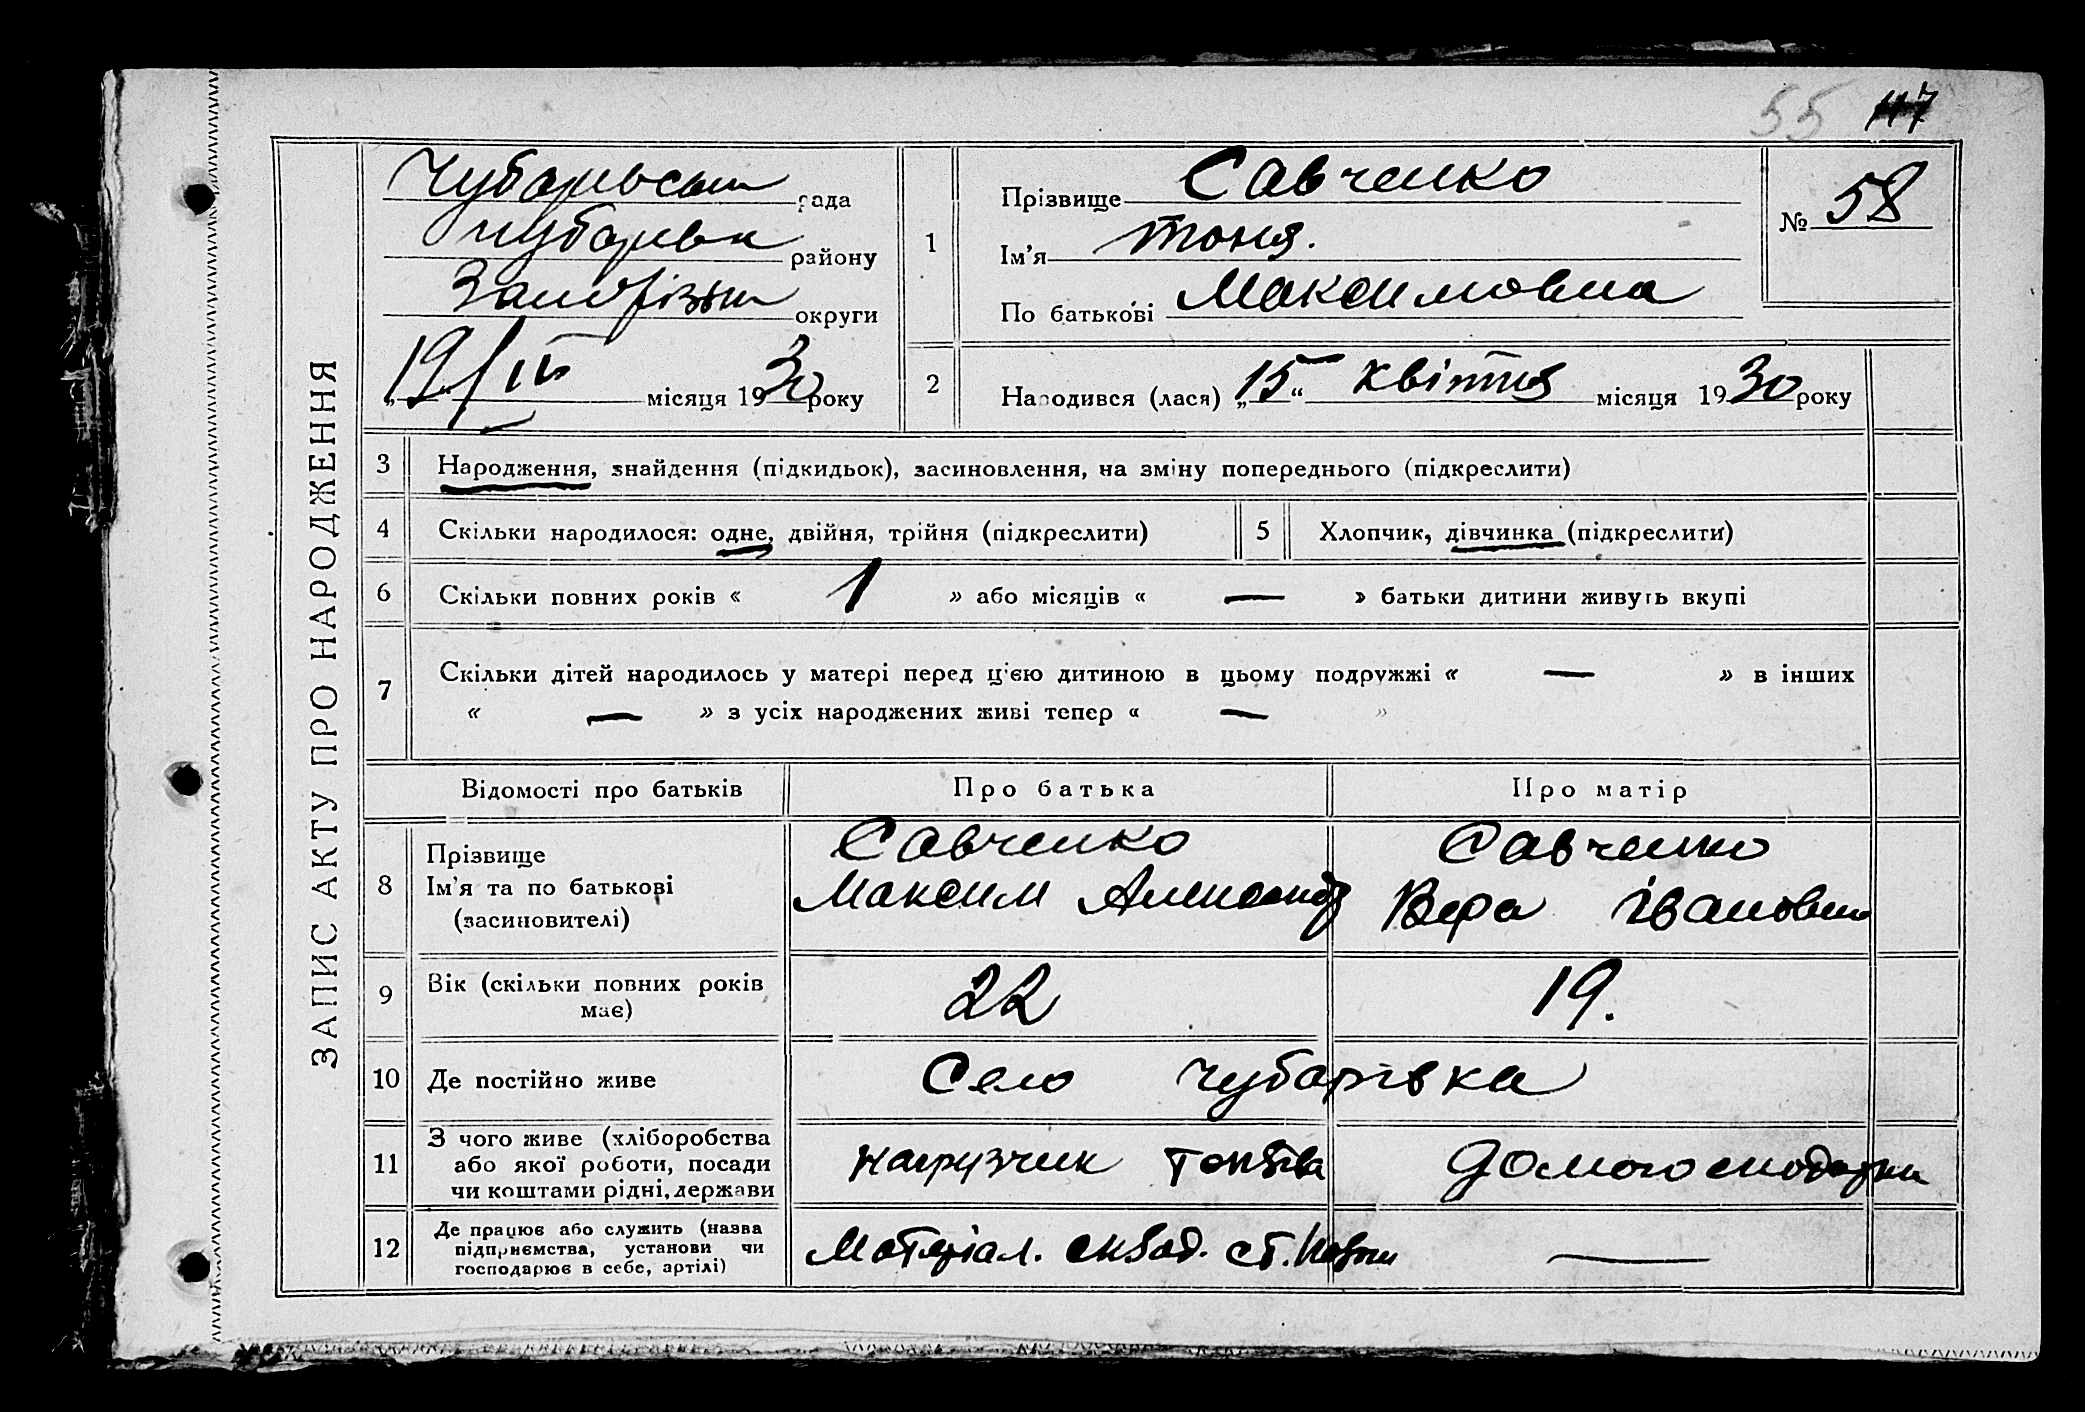 55 117
ЗАПИС АКТУ ПРО НАРОДЖЕННЯ
Чубарьськ рада
Чубарьськ району
Запоріськ округи
„19/IV місяця 1930 року
1
Прізвище Савченко
Ім'я Тоня.
По батькові Максимовна
№ 58
2 Народився (лася) „15“ Квітня місяця 1930 року
3 Народження, знайдення (підкидьок), засиновлення, на зміну попереднього (підкреслити)
4 Скільки народилося: одне, двійня, трійня (підкреслити) 5 Хлопчик, дівчинка (підкреслити)
6 Скільки повних років « 1 » або місяців « — » батьки дитини живуть вкупі
7 Скільки дітей народилось у матері перед ц'єю дитиною в цьому подружжі « — » в інших
« — » з усіх народжених живі тепер « — »
Відомості про батьків Про батька Про матір
8 Прізвище Савченко Савченко
Ім'я та по батькові Максим Александ Вера Івановна
(засиновителі)
9 Вік (скільки повних років має) 22 19.
10 Де постійно живе Село Чубарівка
11 З чого живе (хліборобства
або якої роботи, посади
чи коштами рідні, держави
нагрузчик домогосподарка
12 Де працює або служить (назва
підприємства, установи чи
господарює в себе, артілі)
Матеріал. склад. ст. —